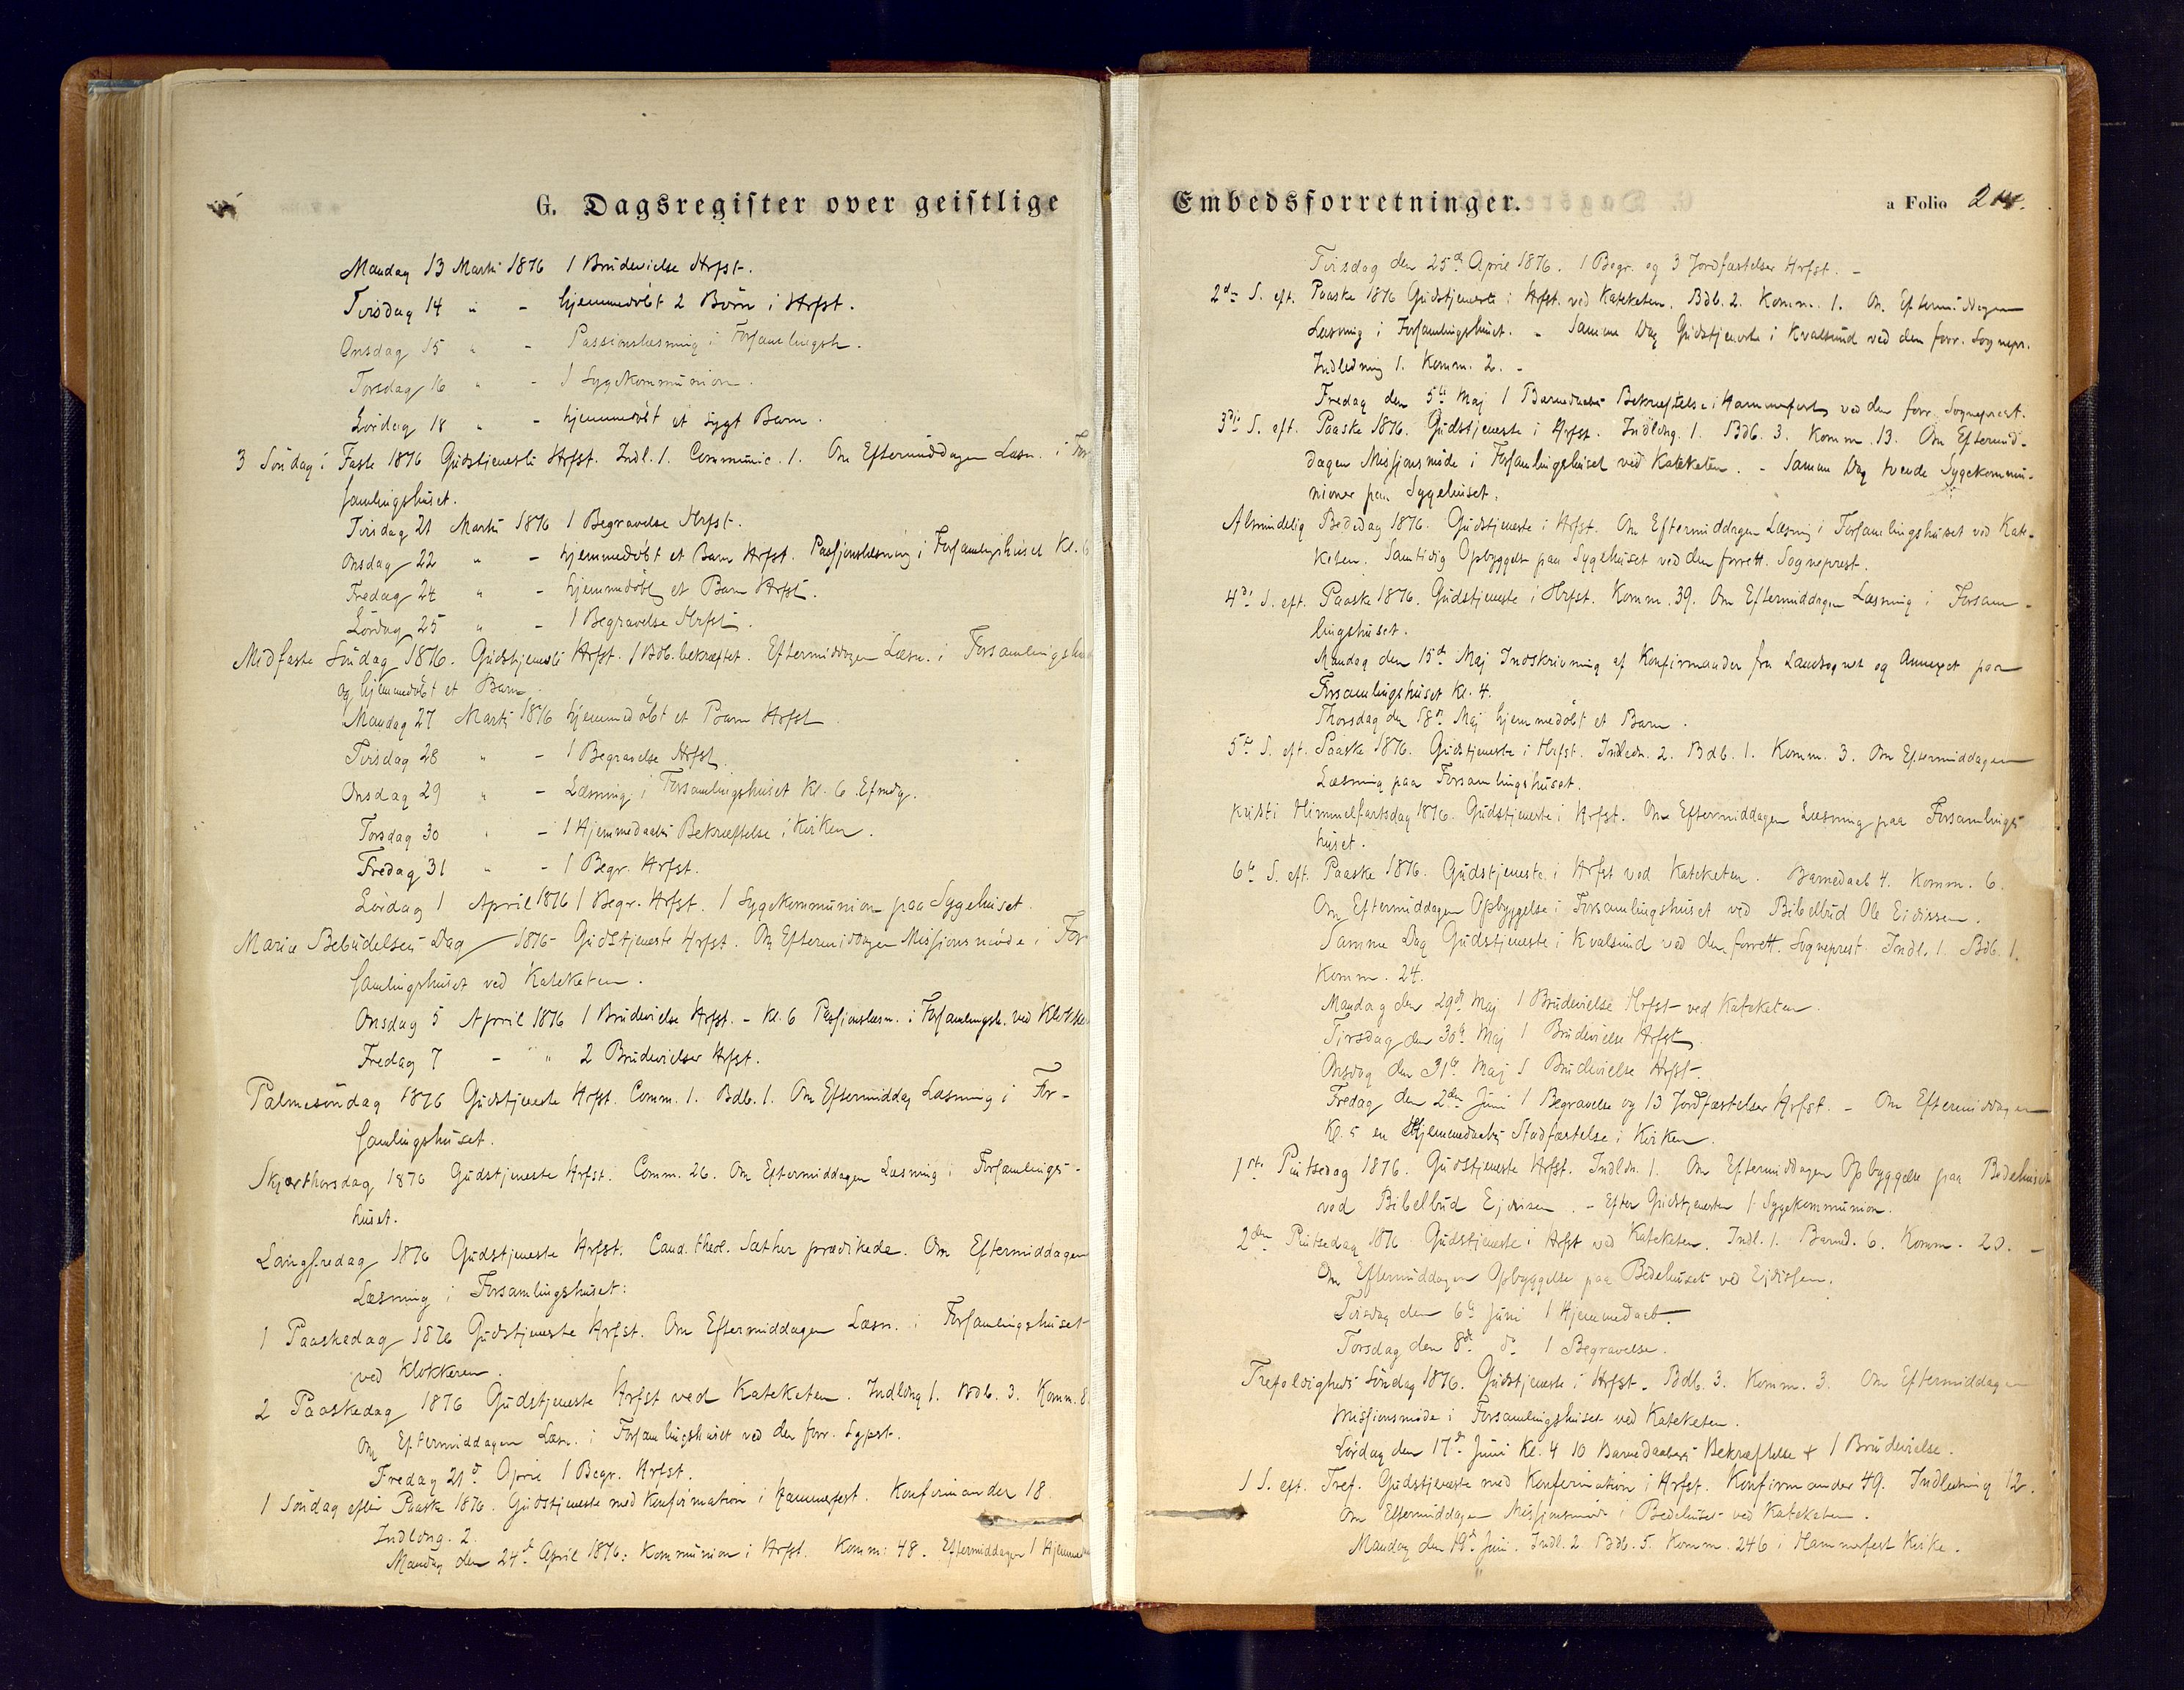 G. Dagsregister over geistlige
Mandag 13 Marts 1876 1 Brudevielse Hrfst.
Tirsdag 14 " - hjemmedøbt 2 Børn i Hrfst.
Onsdag 15 " - Passionslæsning i Forsamlingsh.
Torsdag 16 " - 1 Sygekommunion.
Lördag 18 " - hjemmedøbt et sygt Barn.
3 Søndag i Faste 1876 Gudstjeneste Hrfst. Indl. 1. Communic. 1. Om Eftermiddagen Læsn. i For
samlingshuset.
Tirsdag 21 Marts 1876 1 Begravelse Hrfst.
Onsdag 22 " - hjemmedøbt et Barn Hrfst. Passjonslæsning i Forsamlingshuset Kl. 6
Fredag 24 " - hjemmedøbt et Barn Hrfst.
Lördag 25 " - 1 Begravelse Hrfst.
Midfaste Søndag 1876. Gudstjeneste Hrfst. 1 Bdb. bekræftet. Eftermiddagen Læsn. i Forsamlingshus
og hjemmedøbt et Barn.
Mandag 27 Marts 1876 hjemmedøbt et Barn Hrfst.
Tirsdag 28 " - 1 Begravelse Hrfst.
Onsdag 29 " - Læsning i Forsamlingshuset Kl. 6 Efmdg.
Torsdag 30 " - 1 Hjemmedaabs Bekræftelse i Kirken.
Fredag 31 " - 1 Begr. Hrfst.
Lördag 1 April 1876 1 Begr. Hrfst. 1 Sygekommunion paa Sygehuset.
Mariæ Bebudelses Dag 1876 - Gudstjeneste Hrfst. Om Eftermiddagen Missionsmøde i For
samlingshuset ved Kateketen.
Onsdag 5 April 1876 1 Brudevielse Hrfst. - Kl. 6 Passjonslæsn. i Forsamlingsh. ved Klokke
Fredag 7 - " 2 Brudevielser Hrfst.
Palmesöndag 1876 Gudstjeneste Hrfst. Comm. 1. Bdb. 1. Om Eftermiddag Læsning i For-
samlingshuset.
Skjærthorsdag 1876 Gudstjeneste Hrfst. Comm. 26. Om Eftermiddagen Læsning i Forsamlings-
huset.
Langfredag 1876 Gudstjeneste Hrfst. Cand. theol. Sæther prædikede. Om Eftermiddagen
Læsning i Forsamlingshuset:
1 Paaskedag 1876 Gudstjeneste Hrfst. Om Eftermiddagen Læsn. i Forsamlingshuset
ved Klokkeren.
2 Paaskedag 1876 Gudstjeneste Hrfst ved Kateketen. Indldng 1. Bdb. 3. Komm. 8.
Om Eftermiddagen Læsn. i Forsamlingshuset ved den forr. Sgpst.
Fredag 21d April 1 Begr. Hrfst.
1 Söndag efter Paaske 1876. Gudstjeneste med Konfirmation i Hammerfest. Konfirmander 18.
Indldng. 2.
Mandag den 24d April 1876: Kommunion i Hrfst. Komm: 48. Eftermiddagen 1 Hjemme
Embedsforretninger.
a Folio
Tirsdag den 25d April 1876. 1 Begr. og 3 Jordfæstelser Hrfst. -
2d S. eft. Paaske 1876 Gudstjeneste i Hrfst. ved Kateketen. Bdb. 2. Komm. 1. Om Eftermiddagen
Læsning i Forsamlingshuset. - Samme Dag Gudstjeneste i Kvalsund ved den forr. Sognepr.
Indledning 1. Komm. 2. -
Fredag den 5te Maj 1 Barnedaabs Bekræftelse i Hammerfest ved den forr. Sogneprest.
3di S. eft. Paaske 1876. Gudstjeneste i Hrfst. Indldng. 1. Bdb. 3. Komm. 13. Om Eftermid-
dagen Missjonsmöde i Forsamlingshuset ved Kateketen. - Samme Dag tvende Sygekommu-
nioner paa Sygehuset.
Almindelig Bededag 1876. Gudstjeneste i Hrfst. Om Eftermiddagen Læsning i Forsamlingshuset ved Kate-
keten. Samtidig Opbyggelse paa Sygehuset ved den forrett. Sogneprest.
4di S. eft. Paaske 1876. Gudstjeneste i Hrfst. Komm. 39. Om Eftermiddagen Læsning i Forsam-
lingshuset.
Mandag den 15d Maj Indskrivning af Konfirmander fra Landsognet og Annexet paa
Forsamlingshuset Kl. 4.
Thorsdag den 18d Maj hjemmedøbt et Barn.
5te S. eft. Paaske 1876. Gudstjeneste i Hrfst. Indledn. 2. Bdb. 1. Komm. 3. Om Eftermiddagen
Læsning paa Forsamlingshuset.
Kristi Himmelfartsdag 1876. Gudstjeneste i Hrfst. Om Eftermiddagen Læsning paa Forsamlings
huset.
6te S. eft. Paaske 1876. Gudstjeneste i Hrfst ved Kateketen. Barnedaab 4. Komm. 6.
Om Eftermiddagen Opbyggelse i Forsamlingshuset ved Bibelbud Ole Eidissen.
Samme Dag Gudstjeneste i Kvalsund ved den forrett. Sogneprest. Indl. 1. Bdb. 1.
Komm. 24.
Mandag den 29d Maj 1 Brudevielse Hrfst ved Kateketen.
Tirsdag den 30d Maj 1 Brudevielse Hrfst.
Onsdag den 31te Maj 1 Brudevielse Hrfst.
Fredag den 2den Juni 1 Begravelse og 13 Jordfæstelser Hrfst. - Om Eftermiddagen
Kl. 5 en Hjemmedaabs Stadfæstelse i Kirken.
1ste Pintsedag 1876. Gudstjeneste Hrfst. Indldn. 1. Om Eftermiddagen Opbyggelse paa Bedehuset
ved Bibelbud Ejdissen. - Efter Gudstjenesten 1 Sygekommunion.
2den Pintsedag 1876 Gudstjeneste i Hrfst ved Kateketen. Indl. 1. Barnd. 6. Komm. 20. -
Om Eftermiddagen Opbyggelse paa Bedehuset ved Ejdissen.
Tirsdag den 6te Juni 1 Hjemmedaab.
Torsdag den 8de do 1 Begravelse.
Trefoldigheds Söndag 1876. Gudstjeneste i Hrfst. Bdb. 3. Komm. 3. Om Eftermiddagen
Missionsmøde i Forsamlingshuset ved Kateketen.
Lördag den 17d Juni Kl. 4 10 Barnedaabers Bekræftelse + 1 Brudevielse.
1 S. eft. Tref. Gudstjeneste med Konfirmation i Hrfst. Konfirmander 49. Indledning 12.
Om Eftermiddagen Missjonsmøde i Bedehuset ved Kateketen.
Mandag den 19d Juni. Indl. 2. Bdb. 5. Komm. 246 i Hammerfest Kirke.